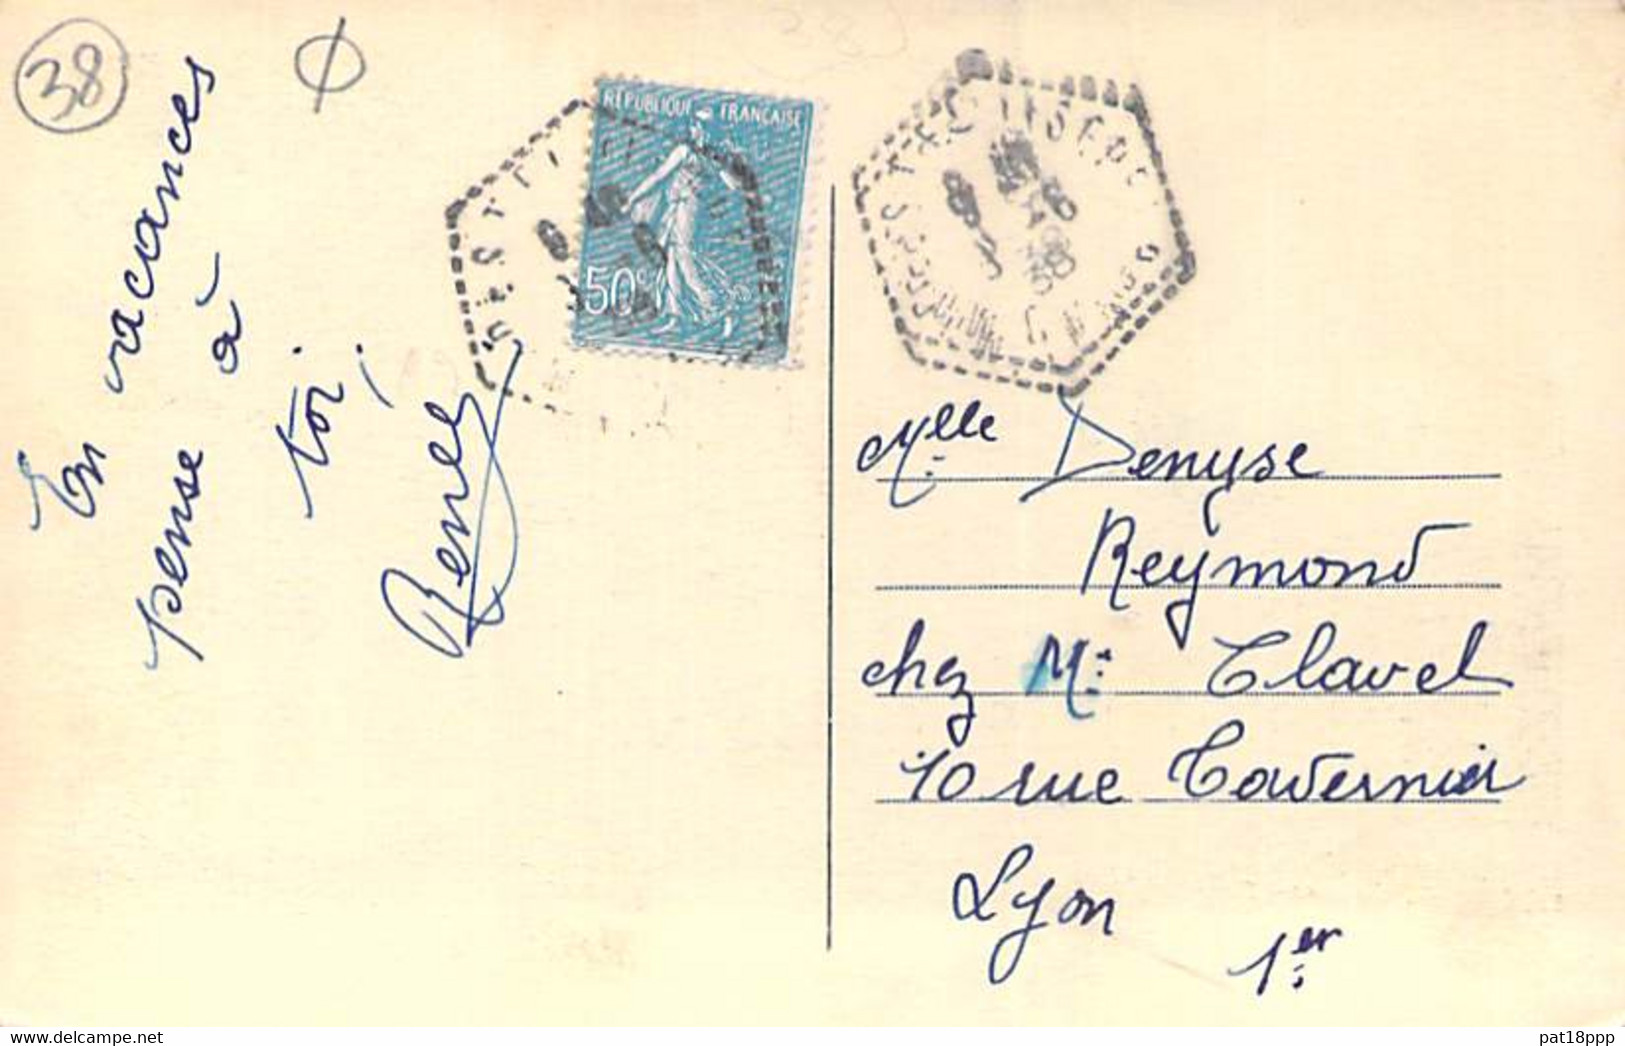 38
En vacances
pense à
toi.
Renée
RÉPUBLIQUE FRANÇAISE
50c
ISERE
38
Mlle Denyse
Reymond
chez Mr Clavel
10 rue Tavernier
Lyon
1er
pat18ppp